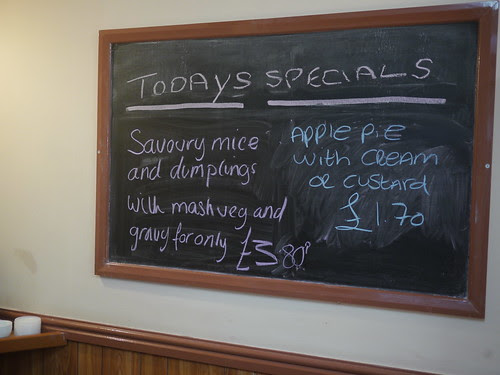 TODAYS SPECIALS
Savoury mice
and dumplings
with mash veg and
gravy for only £3.80P
APPLE PIE
with CREAM
OR CUSTARD
£1.70